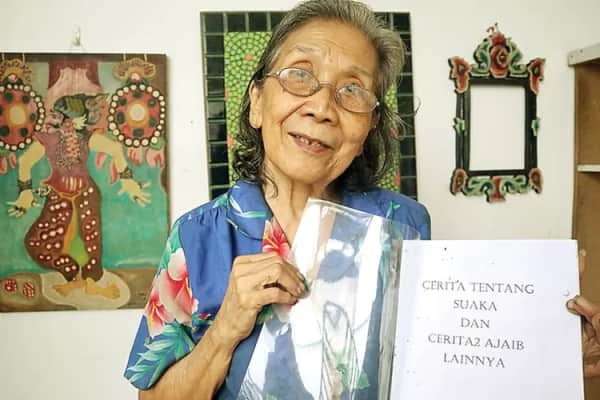 CERITA TENTANG
SUAKA
DAN
CERITA2 AJAIB
LAINNYA